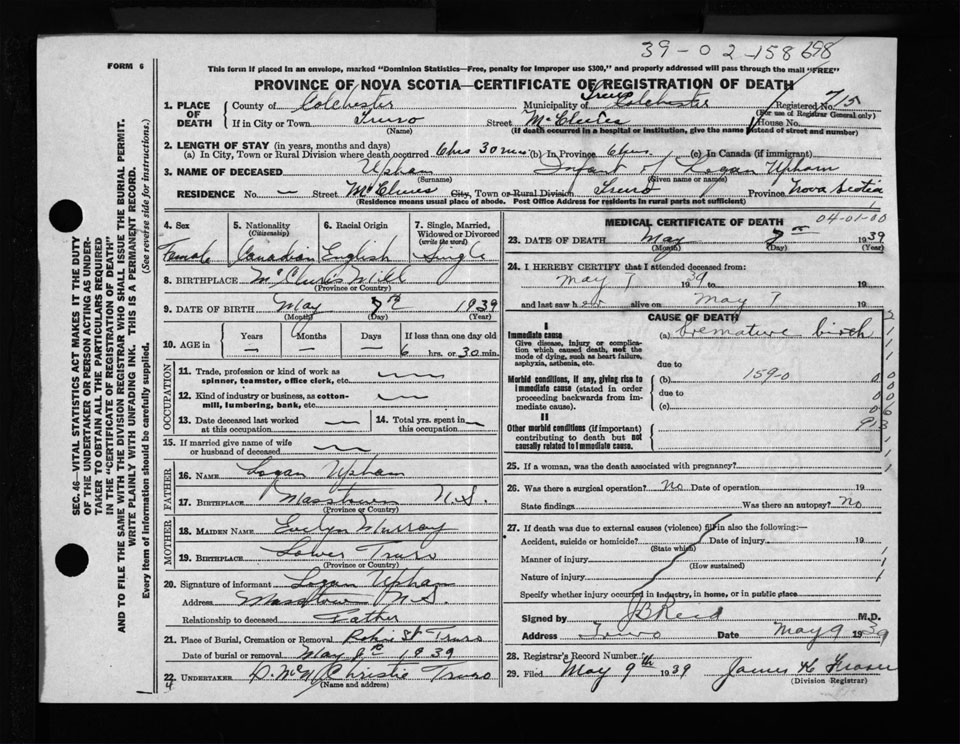 39-02-158698
FORM 6
This form if placed in an envelope, marked "Dominion Statistics—Free, penalty for improper use $300," and properly addressed will pass through the mail "FREE"
PROVINCE OF NOVA SCOTIA—CERTIFICATE OF REGISTRATION OF DEATH
1. PLACE OF DEATH County of Colchester Municipality of Truro Colchester Registered No. 715
(For use of Registrar General only)
If in City or Town Truro Street McClures House No.
(Name) (If death occurred in a hospital or institution, give the name instead of street and number)
2. LENGTH OF STAY (in years, months and days)
(a) In City, Town or Rural Division where death occurred 6 hrs 30 min (b) In Province 6 hrs (c) In Canada (if immigrant)
3. NAME OF DECEASED Upham Infant of Logan Upham
(Surname) (Given name or names)
RESIDENCE No. — Street McClures City, Town or Rural Division Truro Province Nova Scotia
(Residence means usual place of abode. Post Office Address for residents in rural parts not sufficient)
4. Sex Female
5. Nationality (Citizenship) Canadian
6. Racial Origin English
7. Single, Married, Widowed or Divorced (write the word) Single
8. BIRTHPLACE McClures Mill
(Province or Country)
9. DATE OF BIRTH May 7th 1939
(Month) (Day) (Year)
10. AGE in Years — Months — Days — If less than one day old 6 hrs. or 30 min.
OCCUPATION
11. Trade, profession or kind of work as spinner, teamster, office clerk, etc. —
12. Kind of industry or business, as cotton-mill, lumbering, bank, etc. —
13. Date deceased last worked at this occupation —
14. Total yrs. spent in this occupation —
15. If married give name of wife or husband of deceased —
FATHER
16. NAME Logan Upham
17. BIRTHPLACE Masstown N.S.
(Province or Country)
MOTHER
18. MAIDEN NAME Evelyn Murray
19. BIRTHPLACE Lower Truro
(Province or Country)
20. Signature of informant Logan Upham
Address Masstown N.S.
Relationship to deceased Father
21. Place of Burial, Cremation or Removal Robie St Truro
Date of burial or removal May 8th 1939
22. UNDERTAKER D. McN Christie Truro
(Name and address)
4
1
MEDICAL CERTIFICATE OF DEATH
04-01-00
23. DATE OF DEATH May 7th 1939
(Month) (Day) (Year)
24. I HEREBY CERTIFY that I attended deceased from:
May 7 1939 to 19
and last saw her alive on May 7 19
CAUSE OF DEATH
I
Immediate cause (a) Premature birth
Give disease, injury or complication which caused death, not the mode of dying, such as heart failure, asphyxia, asthenia, etc.
due to
Morbid conditions, if any, giving rise to immediate cause (stated in order proceeding backwards from immediate cause).
(b) 159-0
due to
(c)
II
Other morbid conditions (if important) contributing to death but not causally related to immediate cause.
25. If a woman, was the death associated with pregnancy?
26. Was there a surgical operation? No Date of operation 19
State findings Was there an autopsy? No
27. If death was due to external causes (violence) fill in also the following:—
Accident, suicide or homicide? Date of injury 19
(State which)
Manner of injury
(How sustained)
Nature of injury
Specify whether injury occurred in industry, in home, or in public place
Signed by J B Reid M.D.
Address Truro Date May 9 1939
28. Registrar's Record Number
29. Filed May 9th 1939 James H Fraser
(Division Registrar)
SEC. 46—VITAL STATISTICS ACT MAKES IT THE DUTY
OF THE UNDERTAKER OR PERSON ACTING AS UNDERTAKER
TO OBTAIN ALL THE PARTICULARS REQUIRED
IN THE "CERTIFICATE OF REGISTRATION OF DEATH"
AND TO FILE THE SAME WITH THE DIVISION REGISTRAR WHO SHALL ISSUE THE BURIAL PERMIT.
WRITE PLAINLY WITH UNFADING INK. THIS IS A PERMANENT RECORD.
Every item of information should be carefully supplied. (See reverse side for instructions.)